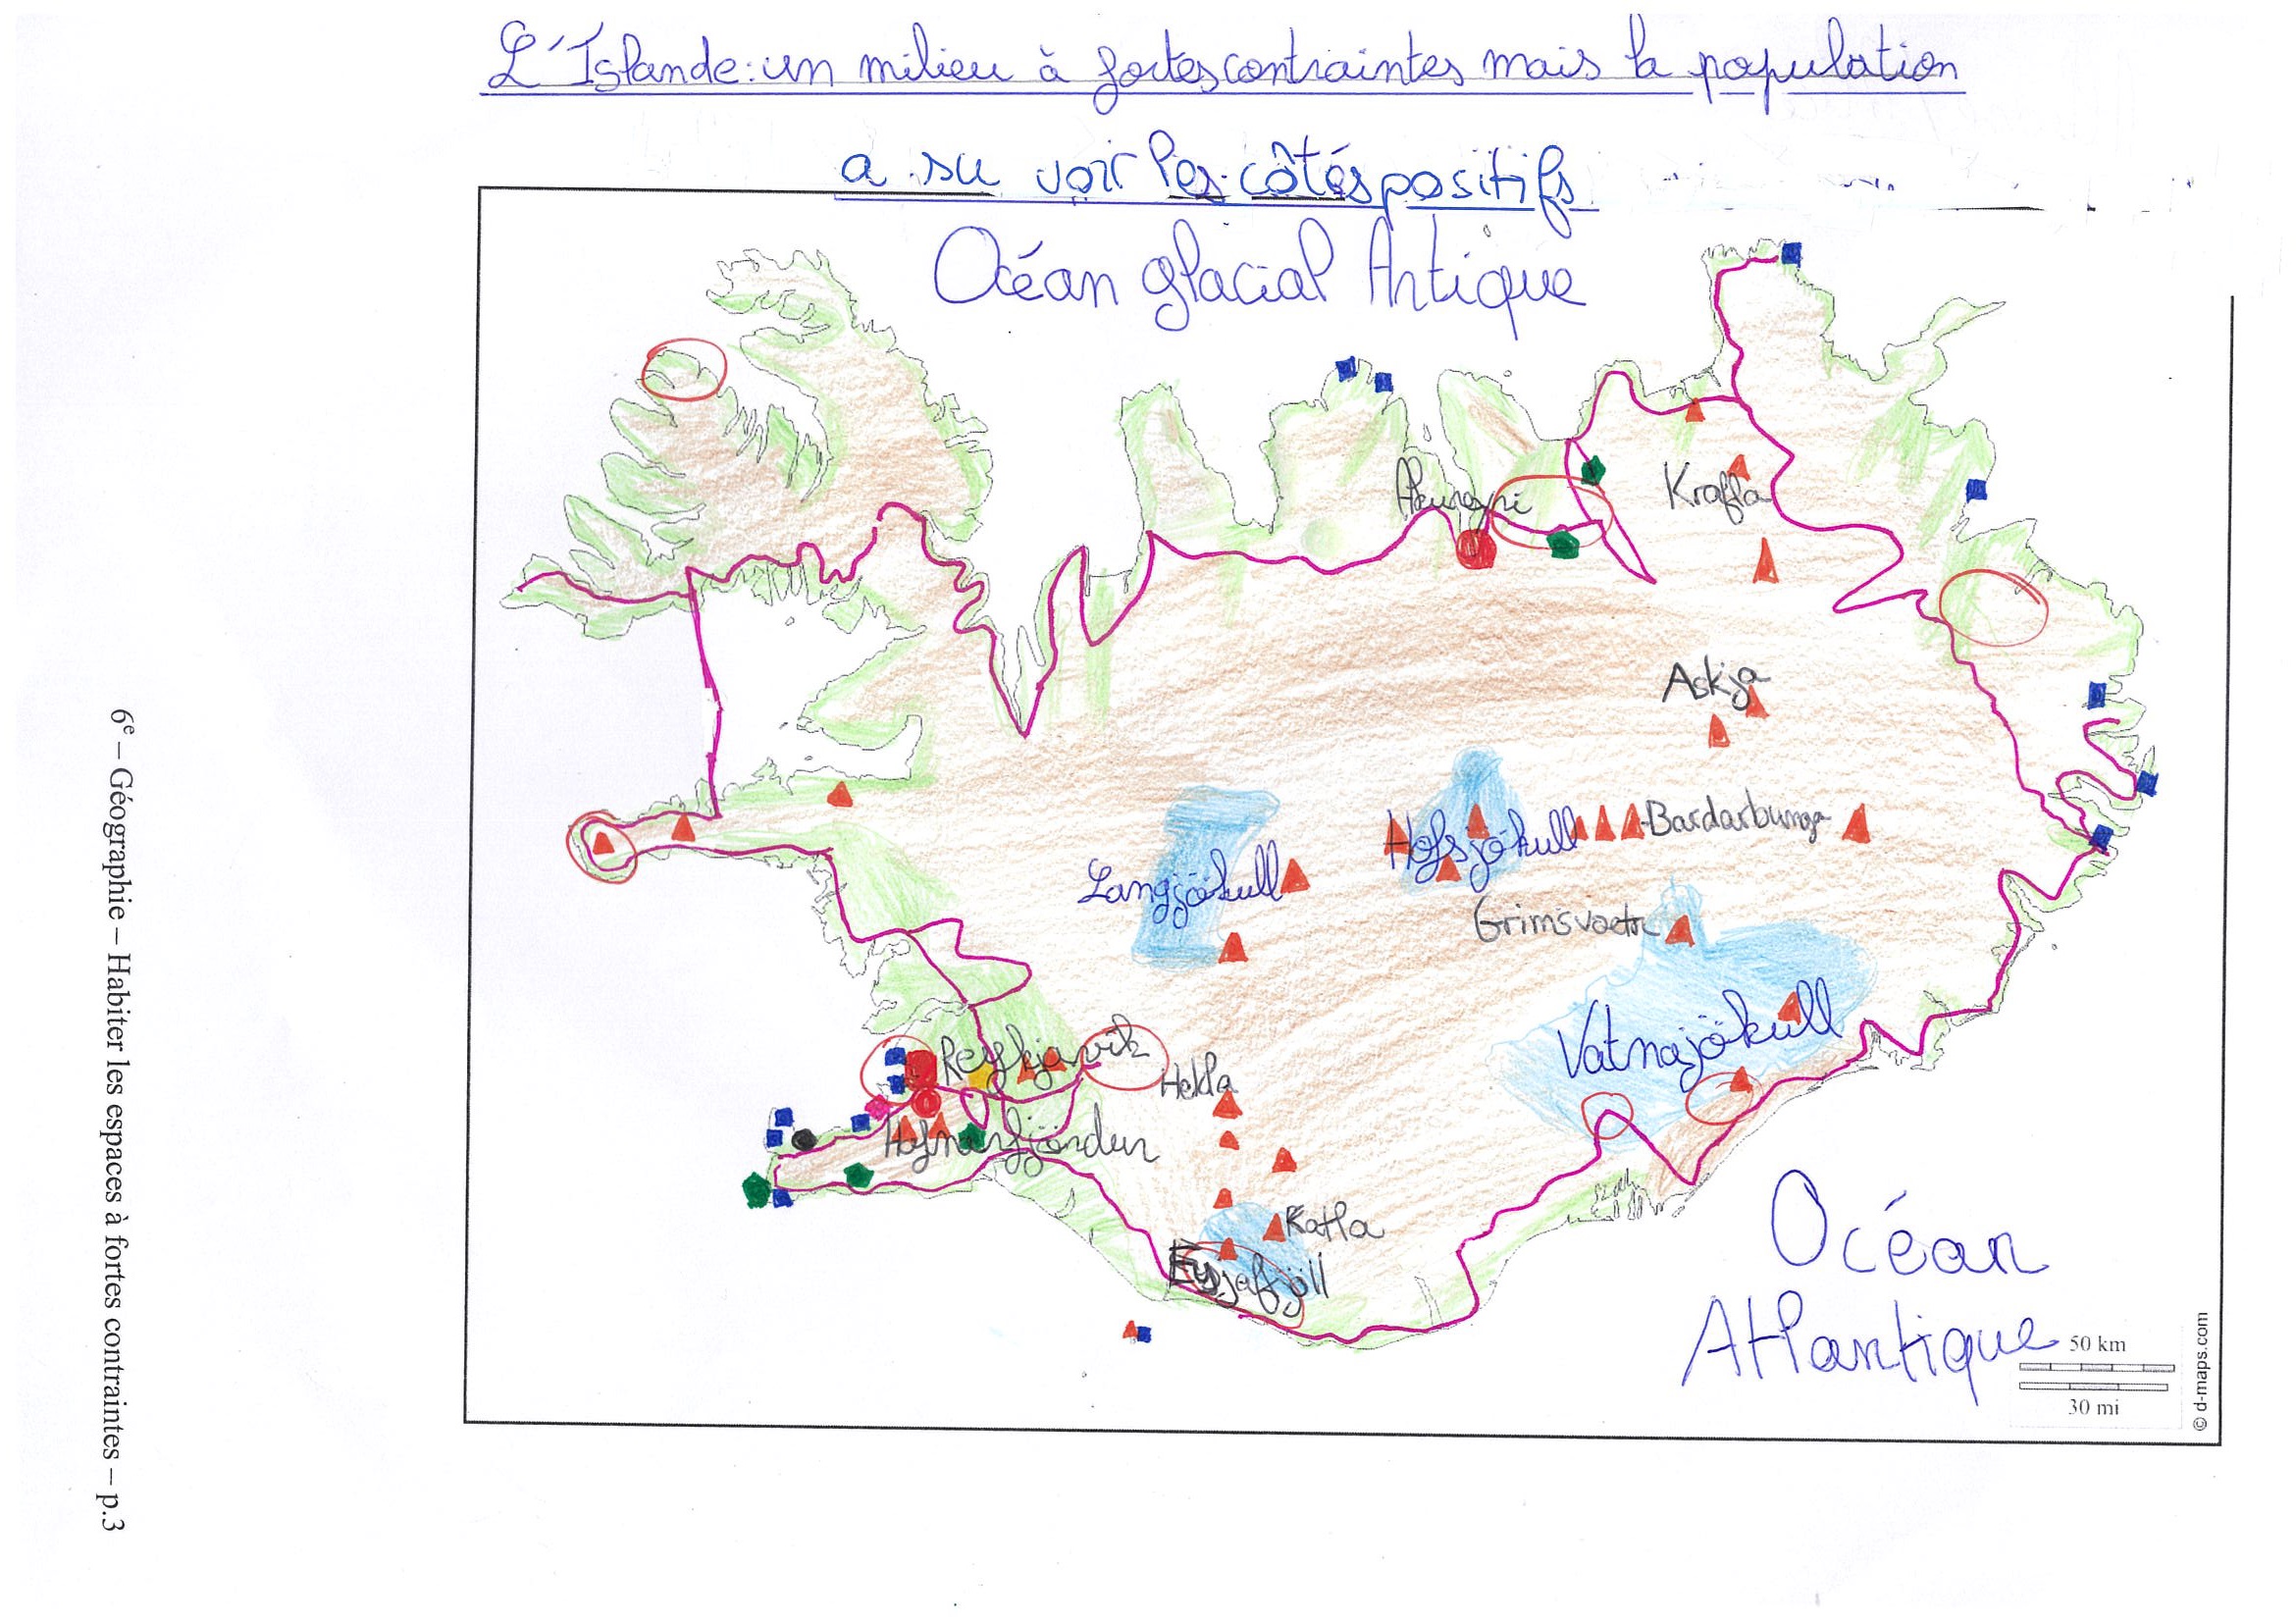 L'Islande: un milieu à fortes contraintes mais la population
a su voir les côtés positifs
Océan glacial Artique
Krafla
Askja
Bardarbunga
Hofsjökull
Langjökull
Grimsvoetn
Vatnajökull
Reykjavik
Hekla
Katla
Eyjafjöll
Océan
Atlantique
50 km
30 mi
© d-maps.com
6e – Géographie – Habiter les espaces à fortes contraintes – p.3